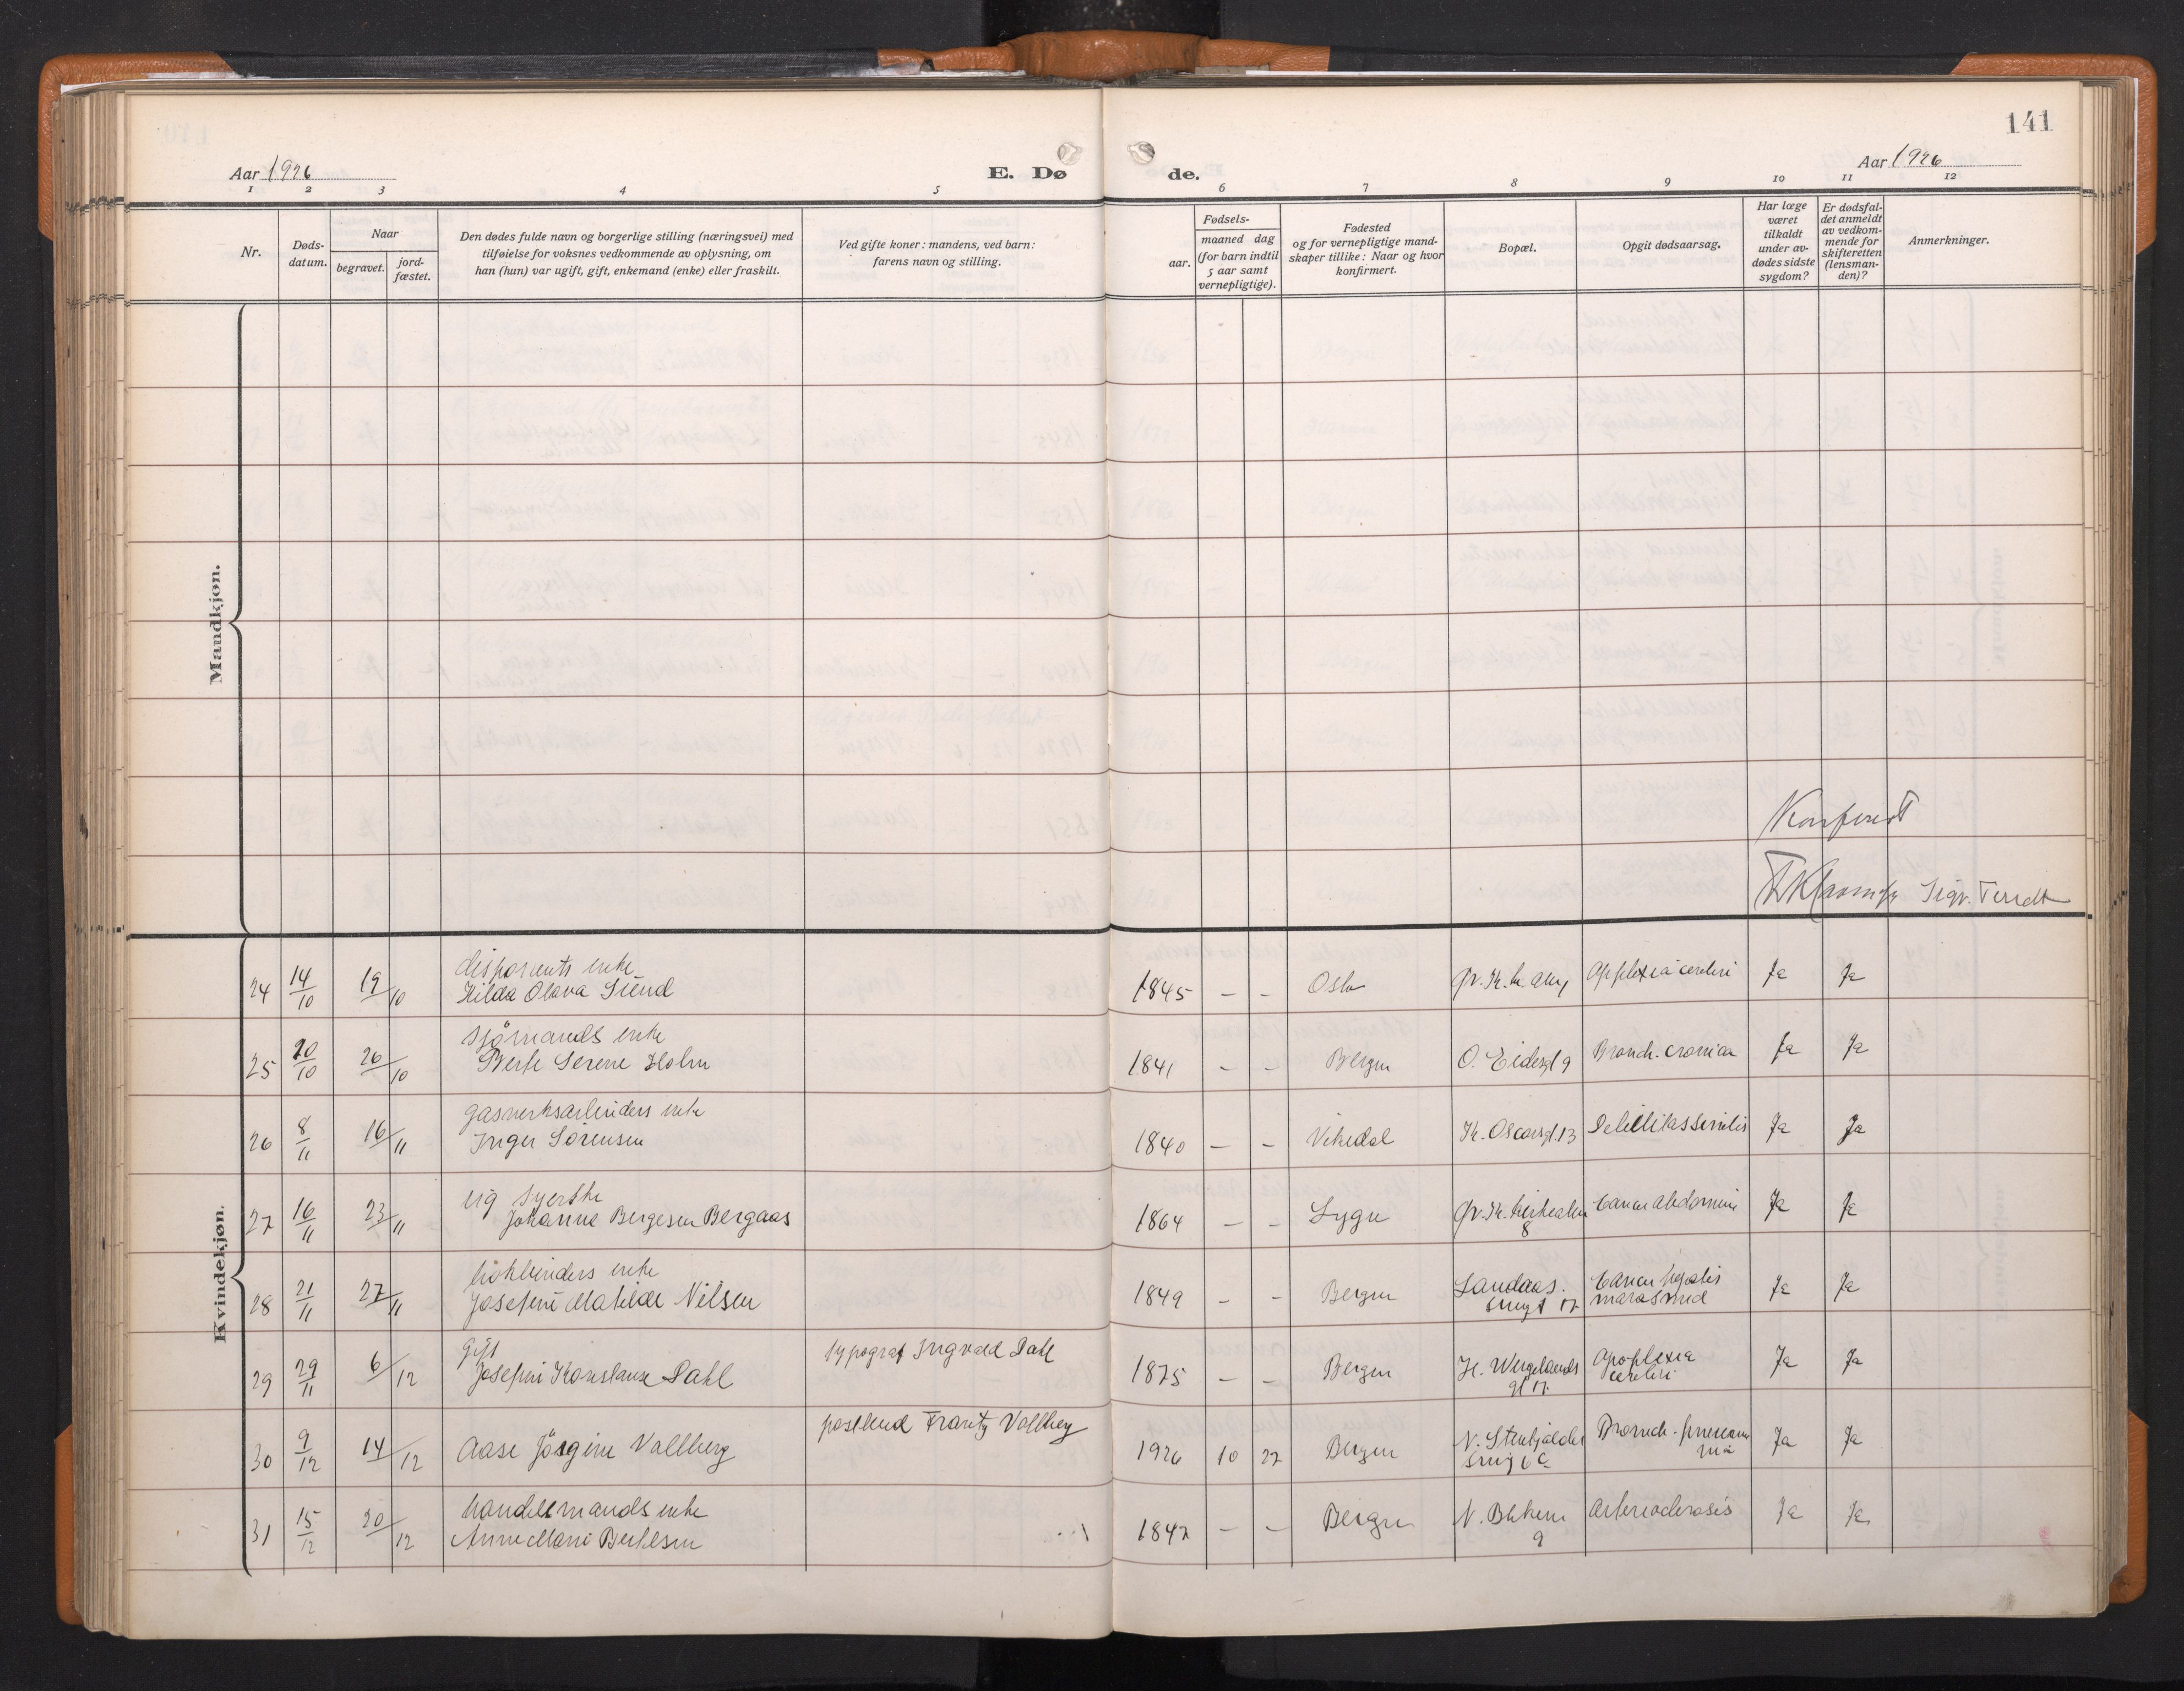 141
Aar 1926
E. Dø
de.
Aar 1926
1 2 3 4 5 6 7 8 9 10 11 12
Nr.
Døds-
datum.
Naar
begravet.
jord-
fæstet.
Den dødes fulde navn og borgerlige stilling (næringsvei) med
tilføielse for voksnes vedkommende av oplysning, om
han (hun) var ugift, gift, enkemand (enke) eller fraskilt.
Ved gifte koner: mandens, ved barn:
farens navn og stilling.
Fødsels-
aar.
maaned dag
(for barn indtil
5 aar samt
vernepligtige).
Fødested
og for vernepligtige mand-
skaper tillike: Naar og hvor
konfirmert.
Bopæl.
Opgit dødsaarsag.
Har læge
været
tilkaldt
under av-
dødes sidste
sygdom?
Er dødsfal-
det anmeldt
av vedkom-
mende for
skifteretten
(lensman-
den)?
Anmerkninger.
Mandkjøn.
Konferert
Kvindekjøn.
disponents enke
24 14/10 19/10 Hilda Olava Sund 1845 - - Oslo Apoplexia cerebri Ja Ja
sjømands enke
25 20/10 26/10 Serene Holm 1841 - - Bergen O. Eidesgt 9 Bronch. cronica Ja Ja
gasverksarbeiders enke
26 8/11 16/11 Inger Sørensen 1840 - - Vikedal K. Oscarsgt. 13 Debilitas senilis Ja Ja
ug syerske
27 16/11 23/11 Johanne Bergesen Bergaas 1864 - - Lygre 8 Cancer abdomine Ja Ja
bokbinders enke
28 21/11 27/11 Josefine Matilde Nilsen 1849 - - Bergen Landaas. Cancer hepatis Ja Ja
gift
29 29/11 6/12 Josefine Konstanse Dahl typograf Ingvald Dahl 1875 - - Bergen H. Wergelands gt 17. Apoplexia cerebri Ja Ja
30 9/12 14/12 Aase Jørgine Vallberg postbud Frantz Vallberg 1926 10 27 Bergen N. Stenkjelder smug 6c Bronch. pneumonia Ja Ja
handelsmands enke
31 15/12 20/12 Anne Marie Bertelsen 1847 - - Bergen N. Blekevn 9 Arteriosclerosis Ja Ja